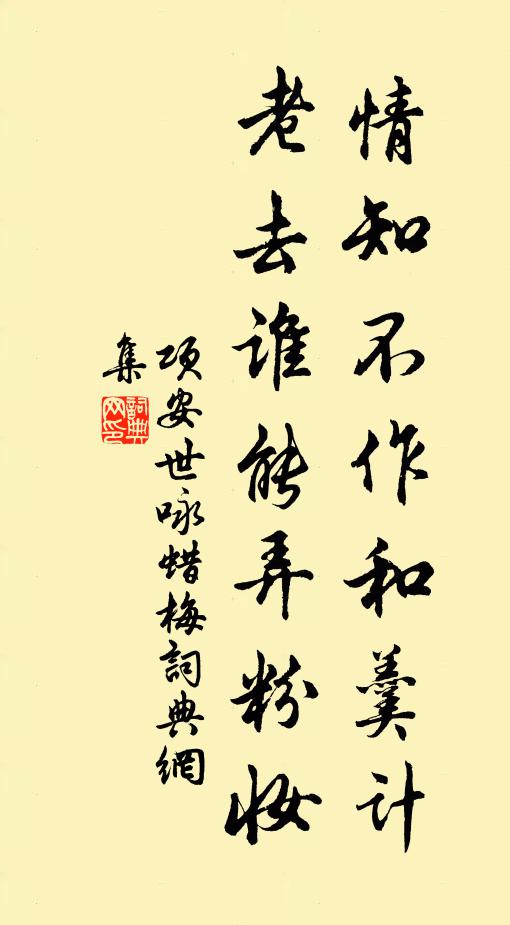 情知不作和羹计
老去谁能弄粉妆
项安世咏蜡梅词典網
集
詞典網印